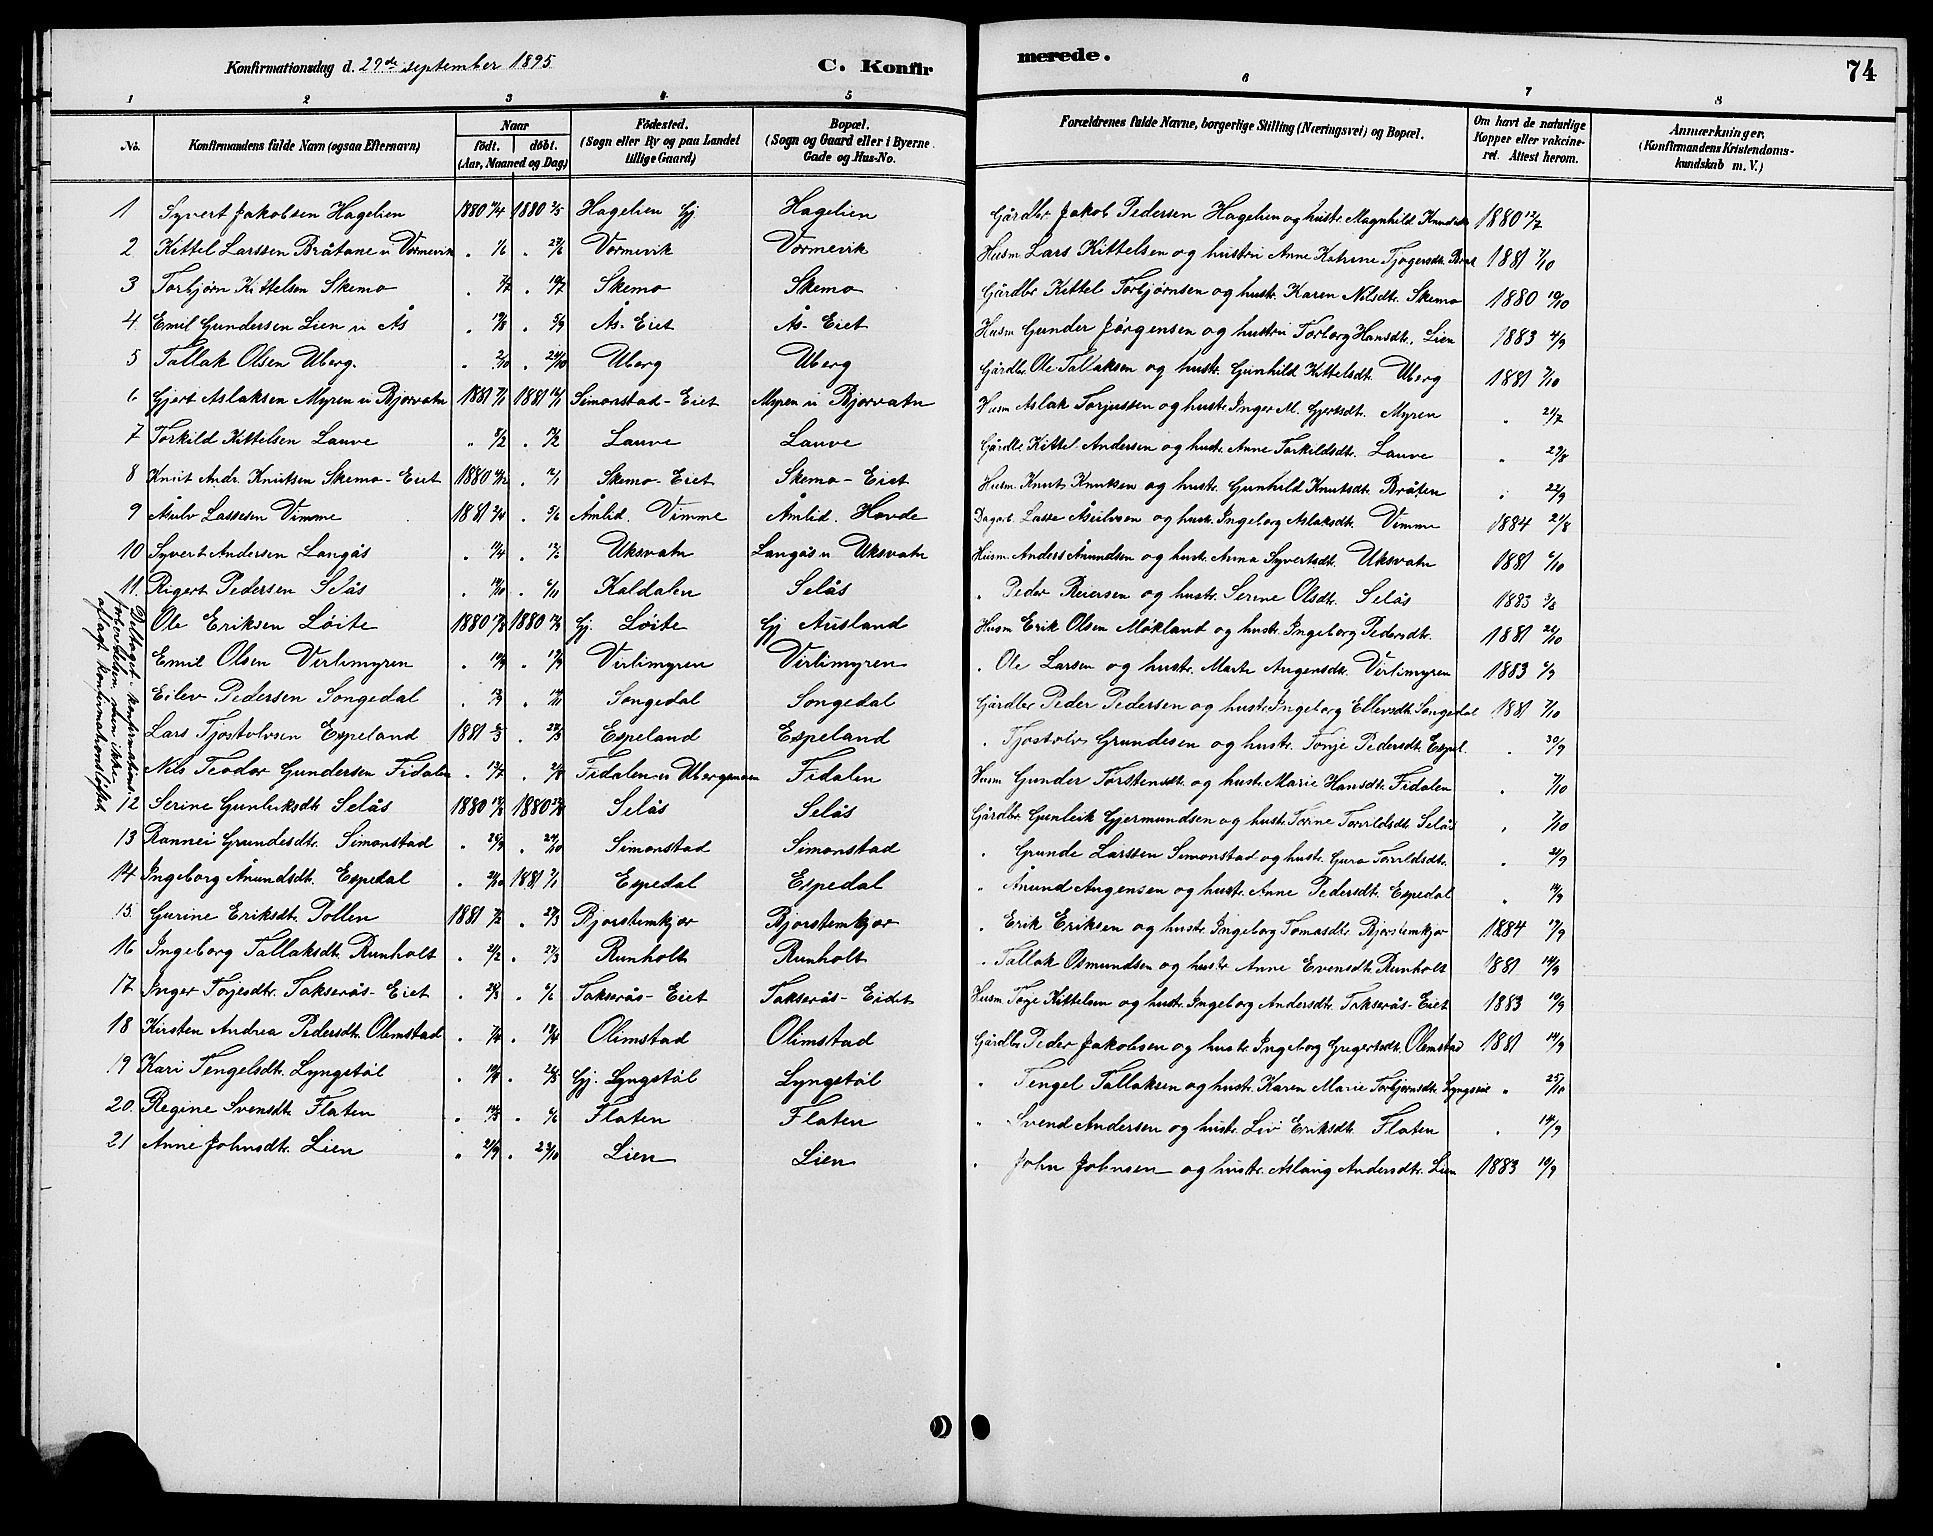 Konfirmationsdag d. 29de september 1895
C. Konfir
merede.
74
1 2 3 4 5 6 7 8
No. Konfirmandens fulde Navn (ogsaa Efternavn) Naar født. døbt. (Aar, Maaned og Dag) Fødested. (Sogn eller By og paa Landet tillige Gaard) Bopæl. (Sogn og Gaard eller i Byerne Gade og Hus-No. Forældrenes fulde Navne, borgerlige Stilling (Næringsvei) og Bopæl. Om havt de naturlige Kopper eller vakcineret. Attest herom. Anmærkninger. (Konfirmandens Kristendomskundskab m. V.)
1 Syvert Jakobsen Hagelien 1880 1880 2/5 Hagelien Gj. Hagelien Gårdbr Jakob Pedersen Hagelien og hustr. Magnhild Knudsdtr 1880 12/7
2 Kittel Larssen Bråtane u Vormevik " 1/6 " 27/6 Vormevik Vormevik Husm Lars Kittelsen og hustru Anne Katrine Tjøgersdtr. 1881 7/10
3 Torbjørn Kittelsen Skemo " 7/7 " 18/7 Skemo Skemo Gårdbr Kittel Torbjørnsen og hustr. Karen Nilsdtr. Skemo 1880 19/10
4 Emil Gundersen Lien u Ås " 19/8 " 5/9 Ås-Eiet Ås-Eiet Husm Gunder Jørgensen og hustru Torborg Hansdtr. Lien 1883 4/9
5 Tallak Olsen Uberg. " 2/10 " 24/10 Uberg Uberg Gårdbr Ole Tallaksen og hustr. Gunhild Kittelsdtr. Uberg 1881 7/10
6 Gjert Aslaksen Myren u Bjorvatn 1881 1881 Simonstad-Eiet Myren u Bjorvatn Husm Aslak Torjussen og hustr. Inger M. Gjertsdtr. Myren " 21/7
7 Torkild Kittelsen Lauve " 8/2 " Lauve Lauve Gårdbr. Kittel Andersen og hustr. Anne Torkildsdtr. Lauve " 29/8
8 Knut Andr. Knutsen Skemo-Eiet 1880 " 2/1 Skemo-Eiet Skemo-Eiet Husm. Knut Knutsen og hustr. Gunhild Knutsdtr. Bråten " 22/9
9 Åsulv Lassesen Vimme 1881 3/4 " 5/6 Åmlid. Vimme Åmlid. Hovde Dagarb. Lasse Åsulvsen og hustr. Ingeborg Aslaksdtr. Vimme 1884 21/8
10 Syvert Andersen Langås " " Uksvatn Langås u Uksvatn Husm. Anders Ånundsen og hustr. Anna Syvertsdtr. Uksvatn 1881 6/10
11. Rigert Pedersen Selås " 19/10 " 6/11 Kaldalen Selås " Peder Reiersen og hustr. Serine Olsdtr. Selås 1883 3/8
Ole Eriksen Løite 1880 1880 Gj. Løite Gj Ausland Husm Erik Olsen Mokland og hustr. Ingeborg Pedersdtr. 1881 22/10
Emil Olsen Virlimyren " " 19/9 Virlimyren Virlimyren " Ole Larsen og hustr. Marte Augensdtr. Virlimyren 1883 6/9
Eilev Pedersen Songedal " " Songedal Songedal Gårdbr Peder Pedersen og hustr. Ingeborg Ellevsdtr. Songedal 1881 7/10
Lars Tjostolvsen Espeland 1881 " Espeland Espeland " Tjostolv Grundesen og hustr. Tonje Pedersdtr. Espel. " 30/9
Nils Teodor Gundersen Fidalen " " Fidalen u Ubergsmoen Fidalen Husm Gunder Torstensdtr og hustr. Marie Hansdtr. Fidalen " 7/10
Deltaget i konfirmationsforberedelsen, men ikke aflagt konfirmationsløftet
12 Serine Gunleiksdtr. Selås 1880 1880 Selås Selås Gårdbr Gunleik Gjermundsen og hustr. Torine Torvildsdtr. Selås " 7/10
13 Rannei Grundesdtr. Simonstad " 25/9 " 24/10 Simonstad Simonstad " Grunde Larssen Simonstad og hustr. Guro Torvildsdtr. " 2/9
14 Ingeborg Ånundsdtr. Espedal " 1881 2/1 Espedal Espedal " Ånund Augensen og hustr. Anne Pedersdtr. Espedal " 14/9
15. Gurine Eriksdtr. Pollen 1881 " 27/3 Bjorstemkjor Bjorstemkjor " Erik Eriksen og hustr. Ingeborg Tomasdtr. Bjorstemkjor 1884 19/9
16 Ingeborg Tallaksdtr. Runholt " 21/2 " 27/3 Runholt Runholt " Tallak Osmundsen og hustr. Anne Evensdtr. Runholt 1881 14/9
17 Inger Torjesdtr. Takserås-Eiet " " 6/6 Takserås-Eiet Takserås-Eidet Husm. Torje Kittelsen og hustr. Ingeborg Andersdtr. Takserås-Eiet 1883 19/9
18 Kirsten Andrea Pedersdtr. Olimstad " 7/4 " Olimstad Olimstad Gårdbr. Peder Jakobsen og hustr. Ingeborg Gregertsdtr. Olimstad 1881 14/9
19 Kari Tengelsdtr. Lyngstøl " " 26/5 Gj. Lyngstøl Lyngstøl " Tengel Tallaksen og hustr. Karen Marie Torbjørnsdtr. " 25/10
20. Regine Svensdtr. Flaten " " 6/6 Flaten Flaten " Svend Andersen og hustr. Liv Eriksdtr. Flaten " 14/9
21 Anne Johnsdtr. Lien " 21/9 " 23/10 Lien Lien " John Johnsen og hustr. Aslaug Andersdtr. Lien 1883 19/9